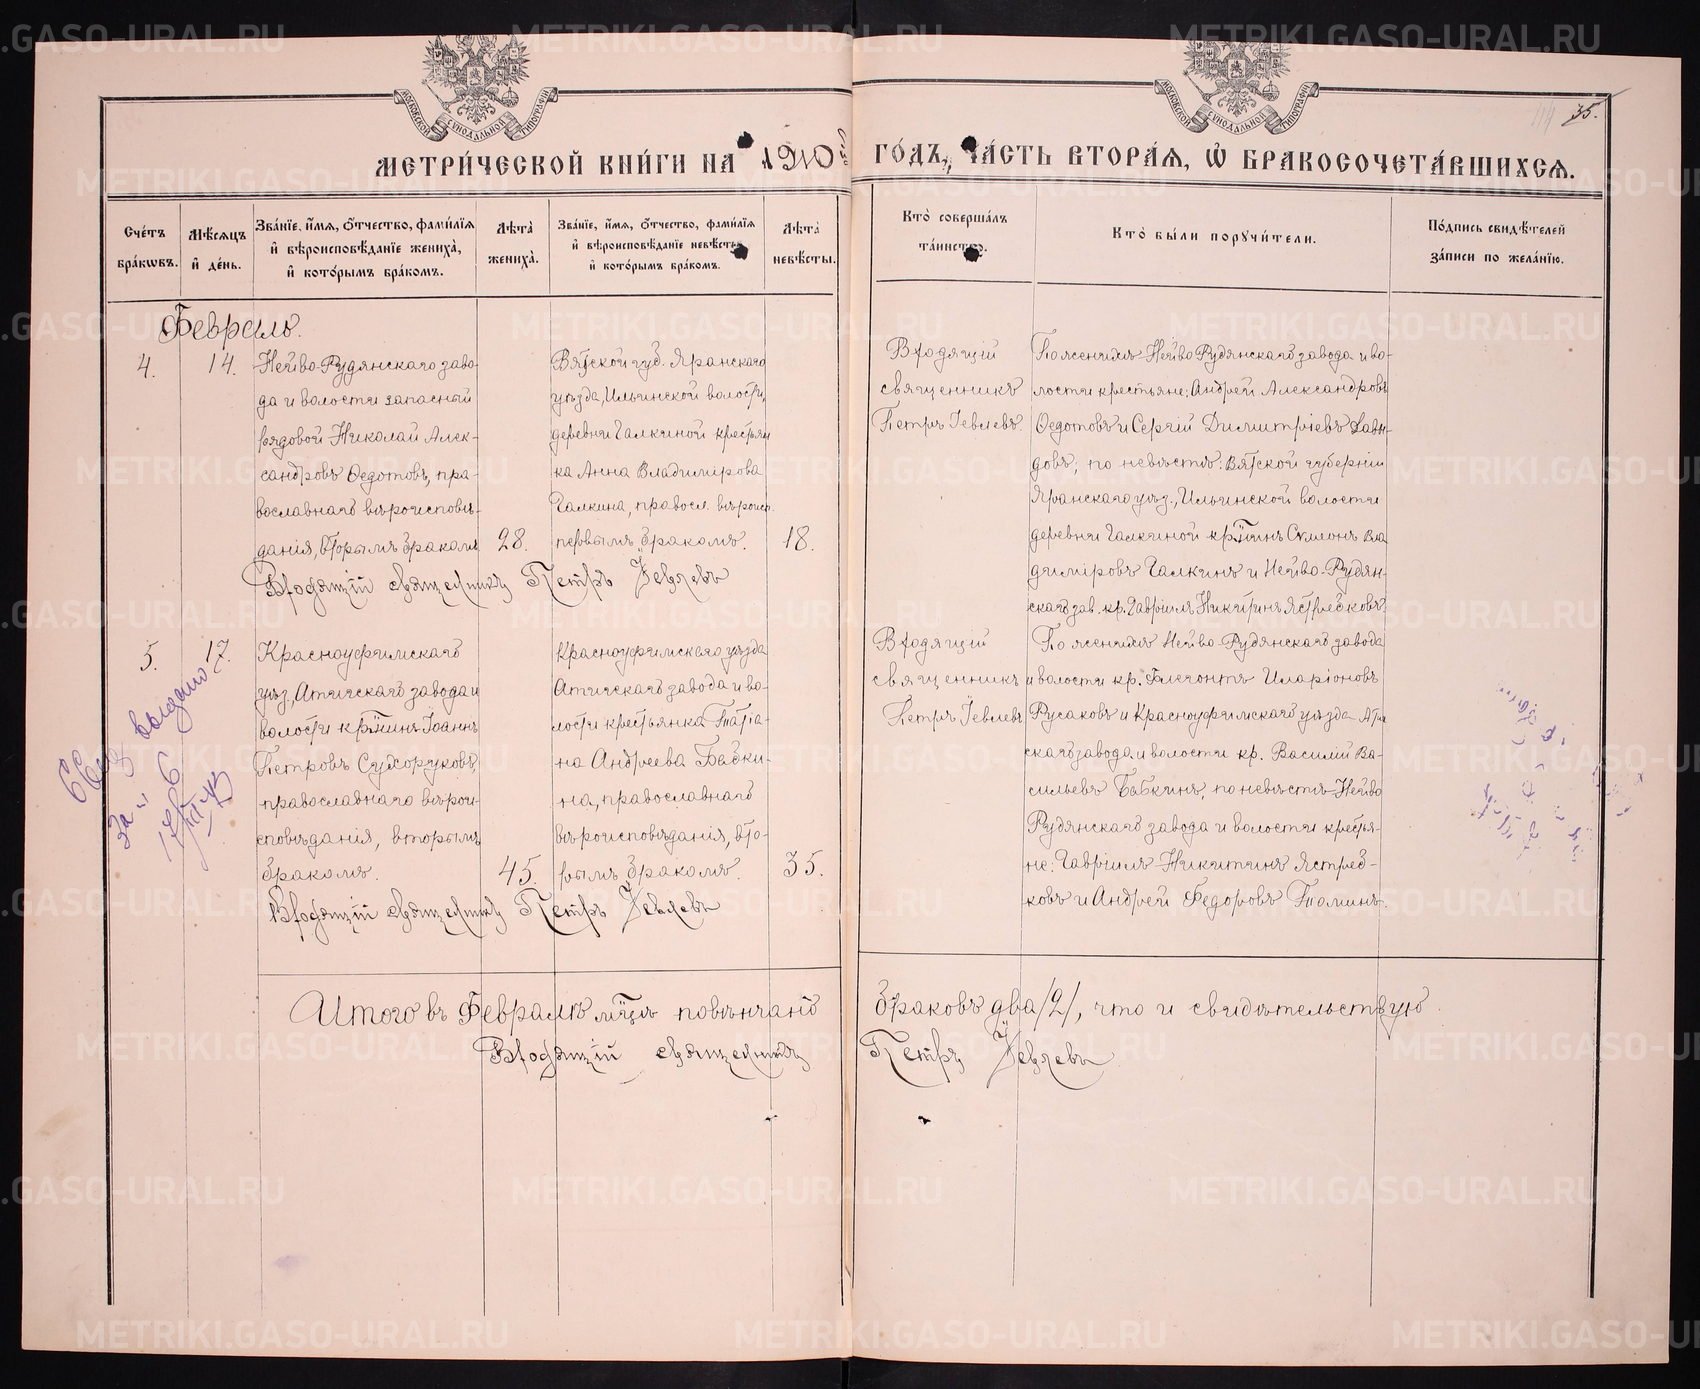 МОСКОВСКОЙ СѴНОДАЛЬНОЙ ТИПОГРАФІИ
МОСКОВСКОЙ СѴНОДАЛЬНОЙ ТИПОГРАФІИ
35.
МЕТРИ́ЧЕСКОЙ КНИ́ГИ НА 1910 ГО́ДЪ, ЧА́СТЬ ВТОРА́Ѧ, Ѡ҆ БРАКОСОЧЕТА́ВШИХСѦ.
Сче́тъ бра́кѡвъ.
Мѣ́сѧцъ и҆ де́нь.
Зва́нїе, и҆́мѧ, ѻ҆́тчество, фами́лїѧ и҆ вѣроисповѣ́данїе жениха̀, и҆ кото́рымъ бра́комъ.
Лѣ́та̀ жениха̀.
Зва́нїе, и҆́мѧ, ѻ҆́тчество, фами́лїѧ и҆ вѣроисповѣ́данїе невѣ́сты и҆ кото́рымъ бра́комъ.
Лѣ́та̀ невѣ́сты.
Кто̀ соверша́лъ та́инство.
Кто̀ бы́ли порꙋчи́тели.
По́дпись свидѣ́телей за́писи по жела́нїю.
Февраль.
4.
14.
Нейво-Рудянскаго заво-
да и волости запасный
рядовой Николай Алек-
сандровъ Ѳедотовъ, пра-
вославнаго вѣроисповѣ-
данія, вторымъ бракомъ
28.
Вятской губ. Яранскаго
уѣзда, Ильинской волости,
деревни Галкиной крестьян
ка Анна Владимірова
Галкина, правосл. вѣроисп.
первымъ бракомъ.
18.
Входящій священникъ Петръ Іевлевъ
Входящій
священникъ
Петръ Іевлевъ
По женихѣ Нейво-Рудянскаго завода и во-
лости крестьяне: Андрей Александровъ
Ѳедотовъ и Сергій Димитріевъ Давы-
довъ; по невѣстѣ: Вятской губерніи
Яранскаго уѣз., Ильинской волости
деревни Галкиной кр҃тинъ Сѵмеонъ Вла
диміровъ Галкинъ и Нейво-Рудян-
скаго зав. кр. Гавріилъ Никитинъ Ястребковъ.
5.
17.
Красноуфимскаго
уѣз., Атигскаго завода и
волости кр҃тинъ Іоаннъ
Петровъ Сухоруковъ,
православнаго вѣрои-
сповѣданія, вторымъ
бракомъ.
45.
Красноуфимскаго уѣзда
Атигскаго завода и во-
лости крестьянка Татіа-
на Андреева Бабки-
на, православнаго
вѣроисповѣданія, вто-
рымъ бракомъ.
35.
Входящій священникъ Петръ Іевлевъ
Входящій
священникъ
Петръ Іевлевъ
По женихѣ Нейво-Рудянскаго завода
и волости кр. Флегонтъ Иларіоновъ
Русаковъ и Красноуфимскаго уѣзда Ати
скаго завода и волости кр. Василій Ва-
сильевъ Бабкинъ, по невѣстѣ Нейво
Рудянскаго завода и волости крестья-
не: Гавріилъ Никитинъ Ястреб-
ковъ и Андрей Федоровъ Томинъ.
выдано
За №
Итого въ Февралѣ мц҃ѣ повѣнчано браковъ два /2/, что и свидѣтельствую
Входящій священникъ Петръ Іевлевъ
METRIKI.GASO-URAL.RU